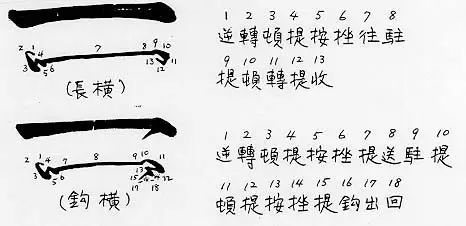 1 2 3 4 5 6 7 8
逆轉頓提按挫往駐
9 10 11 12 13
提頓轉提收
2 1 4 7 8 9 10
3 5 6 13 12 11
(長橫)
1 2 3 4 5 6 7 8 9 10
逆轉頓提按挫提送駐提
11 12 13 14 15 16 17 18
頓提按挫提鈎出回
2 1 4 7 8 9 10 11
3 5 6 13
(鈎橫)